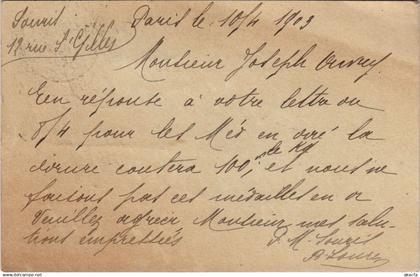 Paris le 10/4 1903
12 rue St Gilles
Monsieur Joseph
En réponse à votre lettre du
8/4 pour les Méd en la
dorure coutera 100, le Kg et nous ne
faisons pas ces médailles en or
Veuillez agréer Monsieur mes salu-
tions empressées